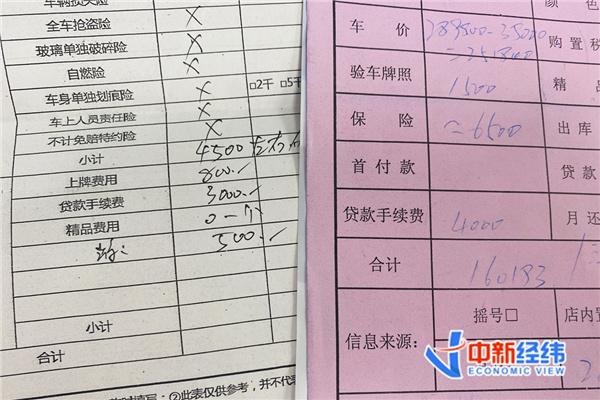 车辆损失险
全车抢盗险 X
玻璃单独破碎险 X
自燃险 X
车身单独划痕险 X □2千 □5千
车上人员责任险 X
不计免赔特约险 X
小计 4500 左右
上牌费用 800.
贷款手续费 3000.
精品费用 0一个
500.
小计
合计
②此表仅供参考，并不代表
颜色
车价 289500-35000 购置税
=251800
验车牌照 1500 精品
保险 ≈6500 出库
首付款 贷款
贷款手续费 4000 月还
合计 160183
摇号□ 店内置
信息来源：
中新经纬
ECONOMIC VIEW